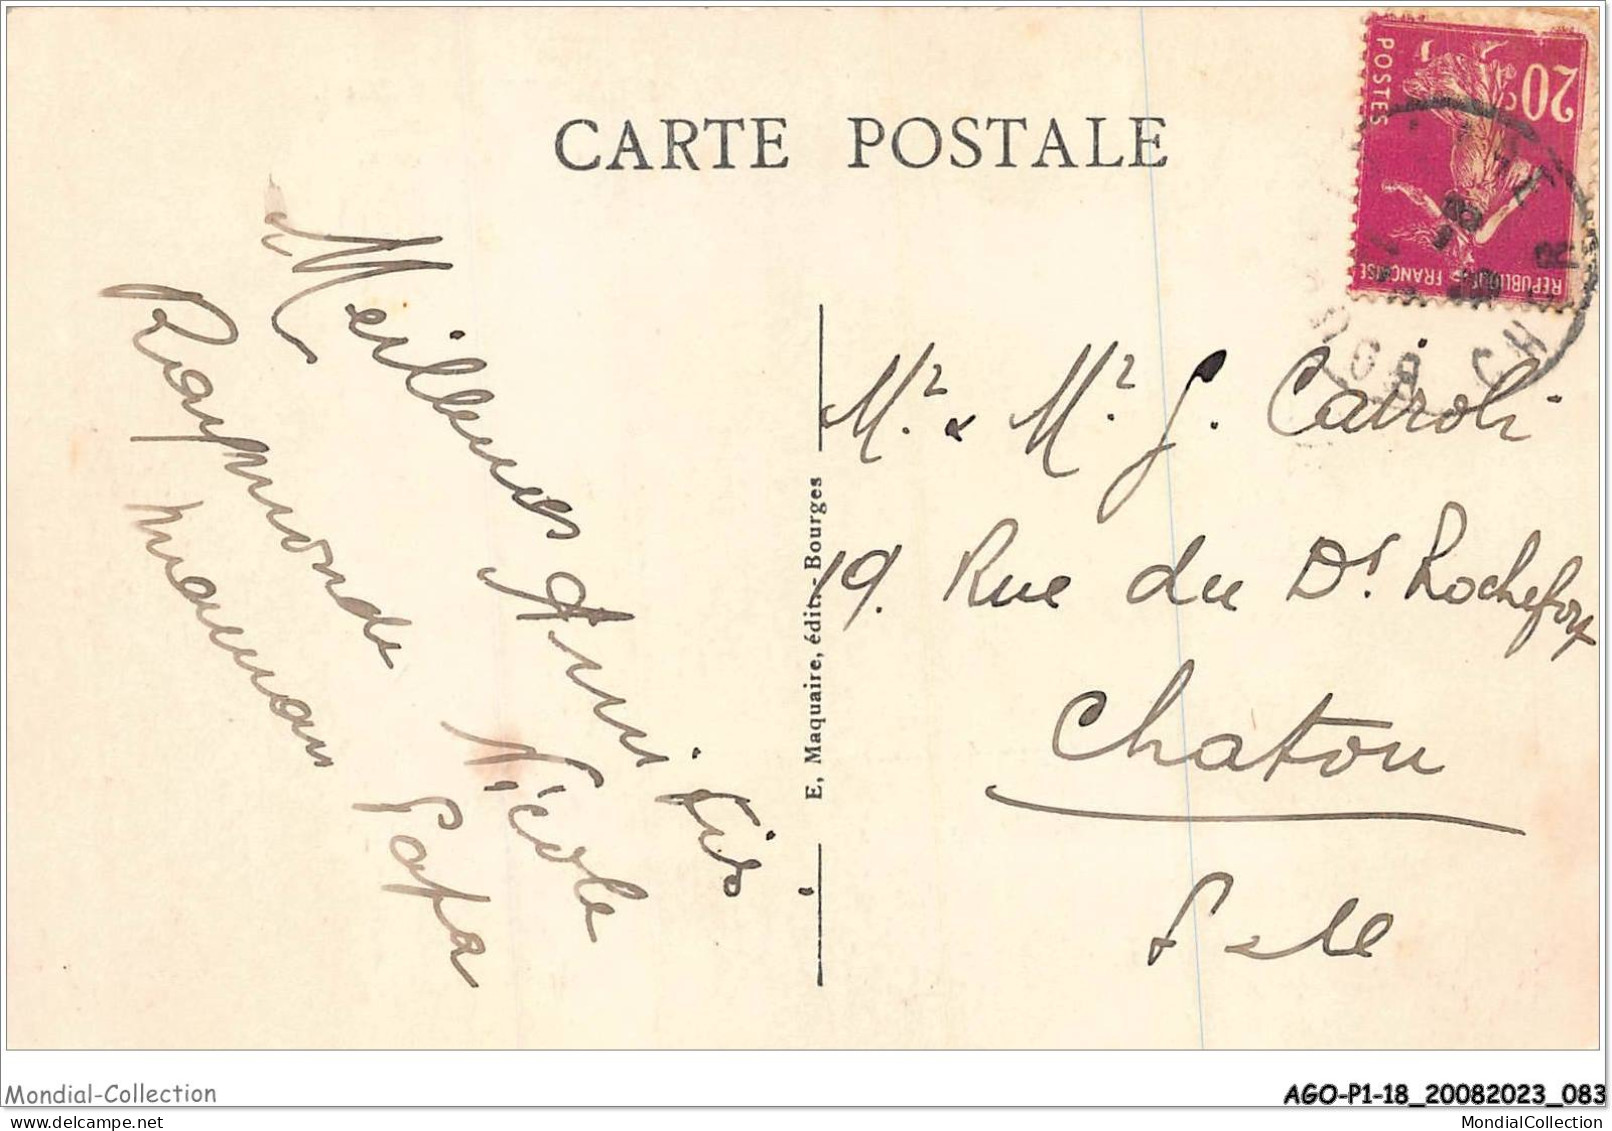 CARTE POSTALE
20c
POSTES
REPUBLIQUE FRANÇAISE
Meilleures Amitiés
Raymonde Nicole
maman Papa
E. Maquaire, édit. - Bourges
Mr. & Mr. J. Cairoli
19. Rue du Dr. Rochefort
Chatou
S et
Mondial-Collection
AGO-P1-18_20082023_083
MondialCollection.com